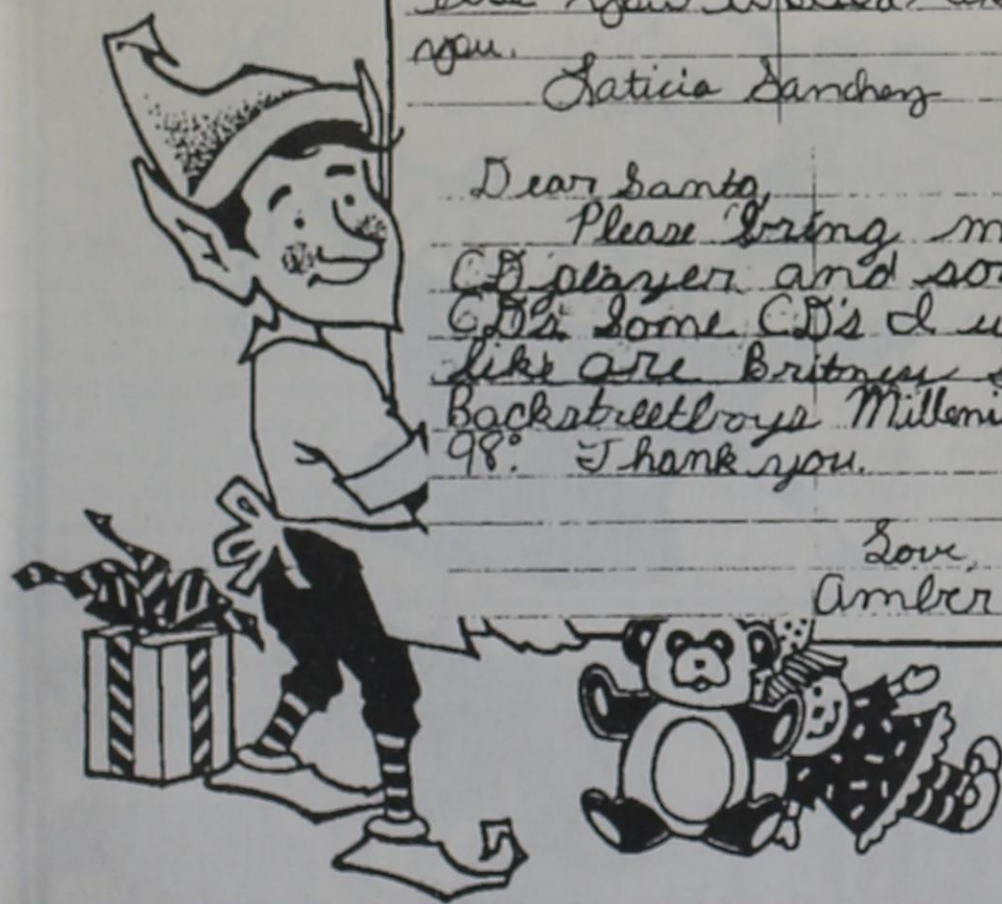 you.
Laticia Sanchez
Dear Santa,
Please bring m
CD player and so
CD's. Some CD's I w
like are Britney s
Backstreetboys Milleni
98°. Thank you.
Love,
Amber